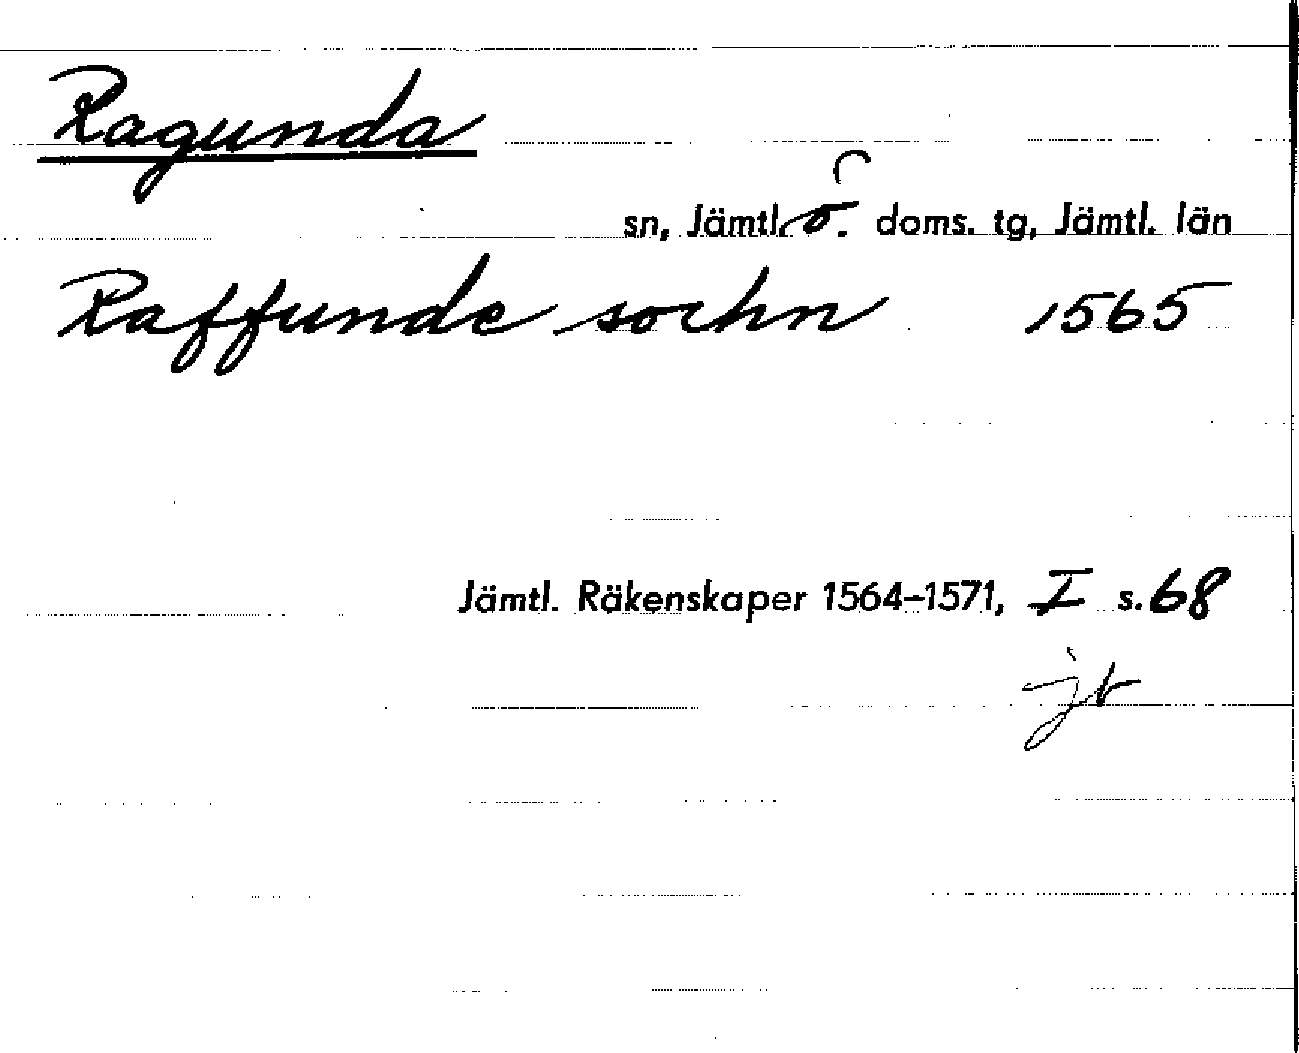 Ragunda
sn, Jämtl. ö. doms. tg, Jämtl. län
Raffunde sochn 1565
Jämtl. Räkenskaper 1564-1571, I s. 68